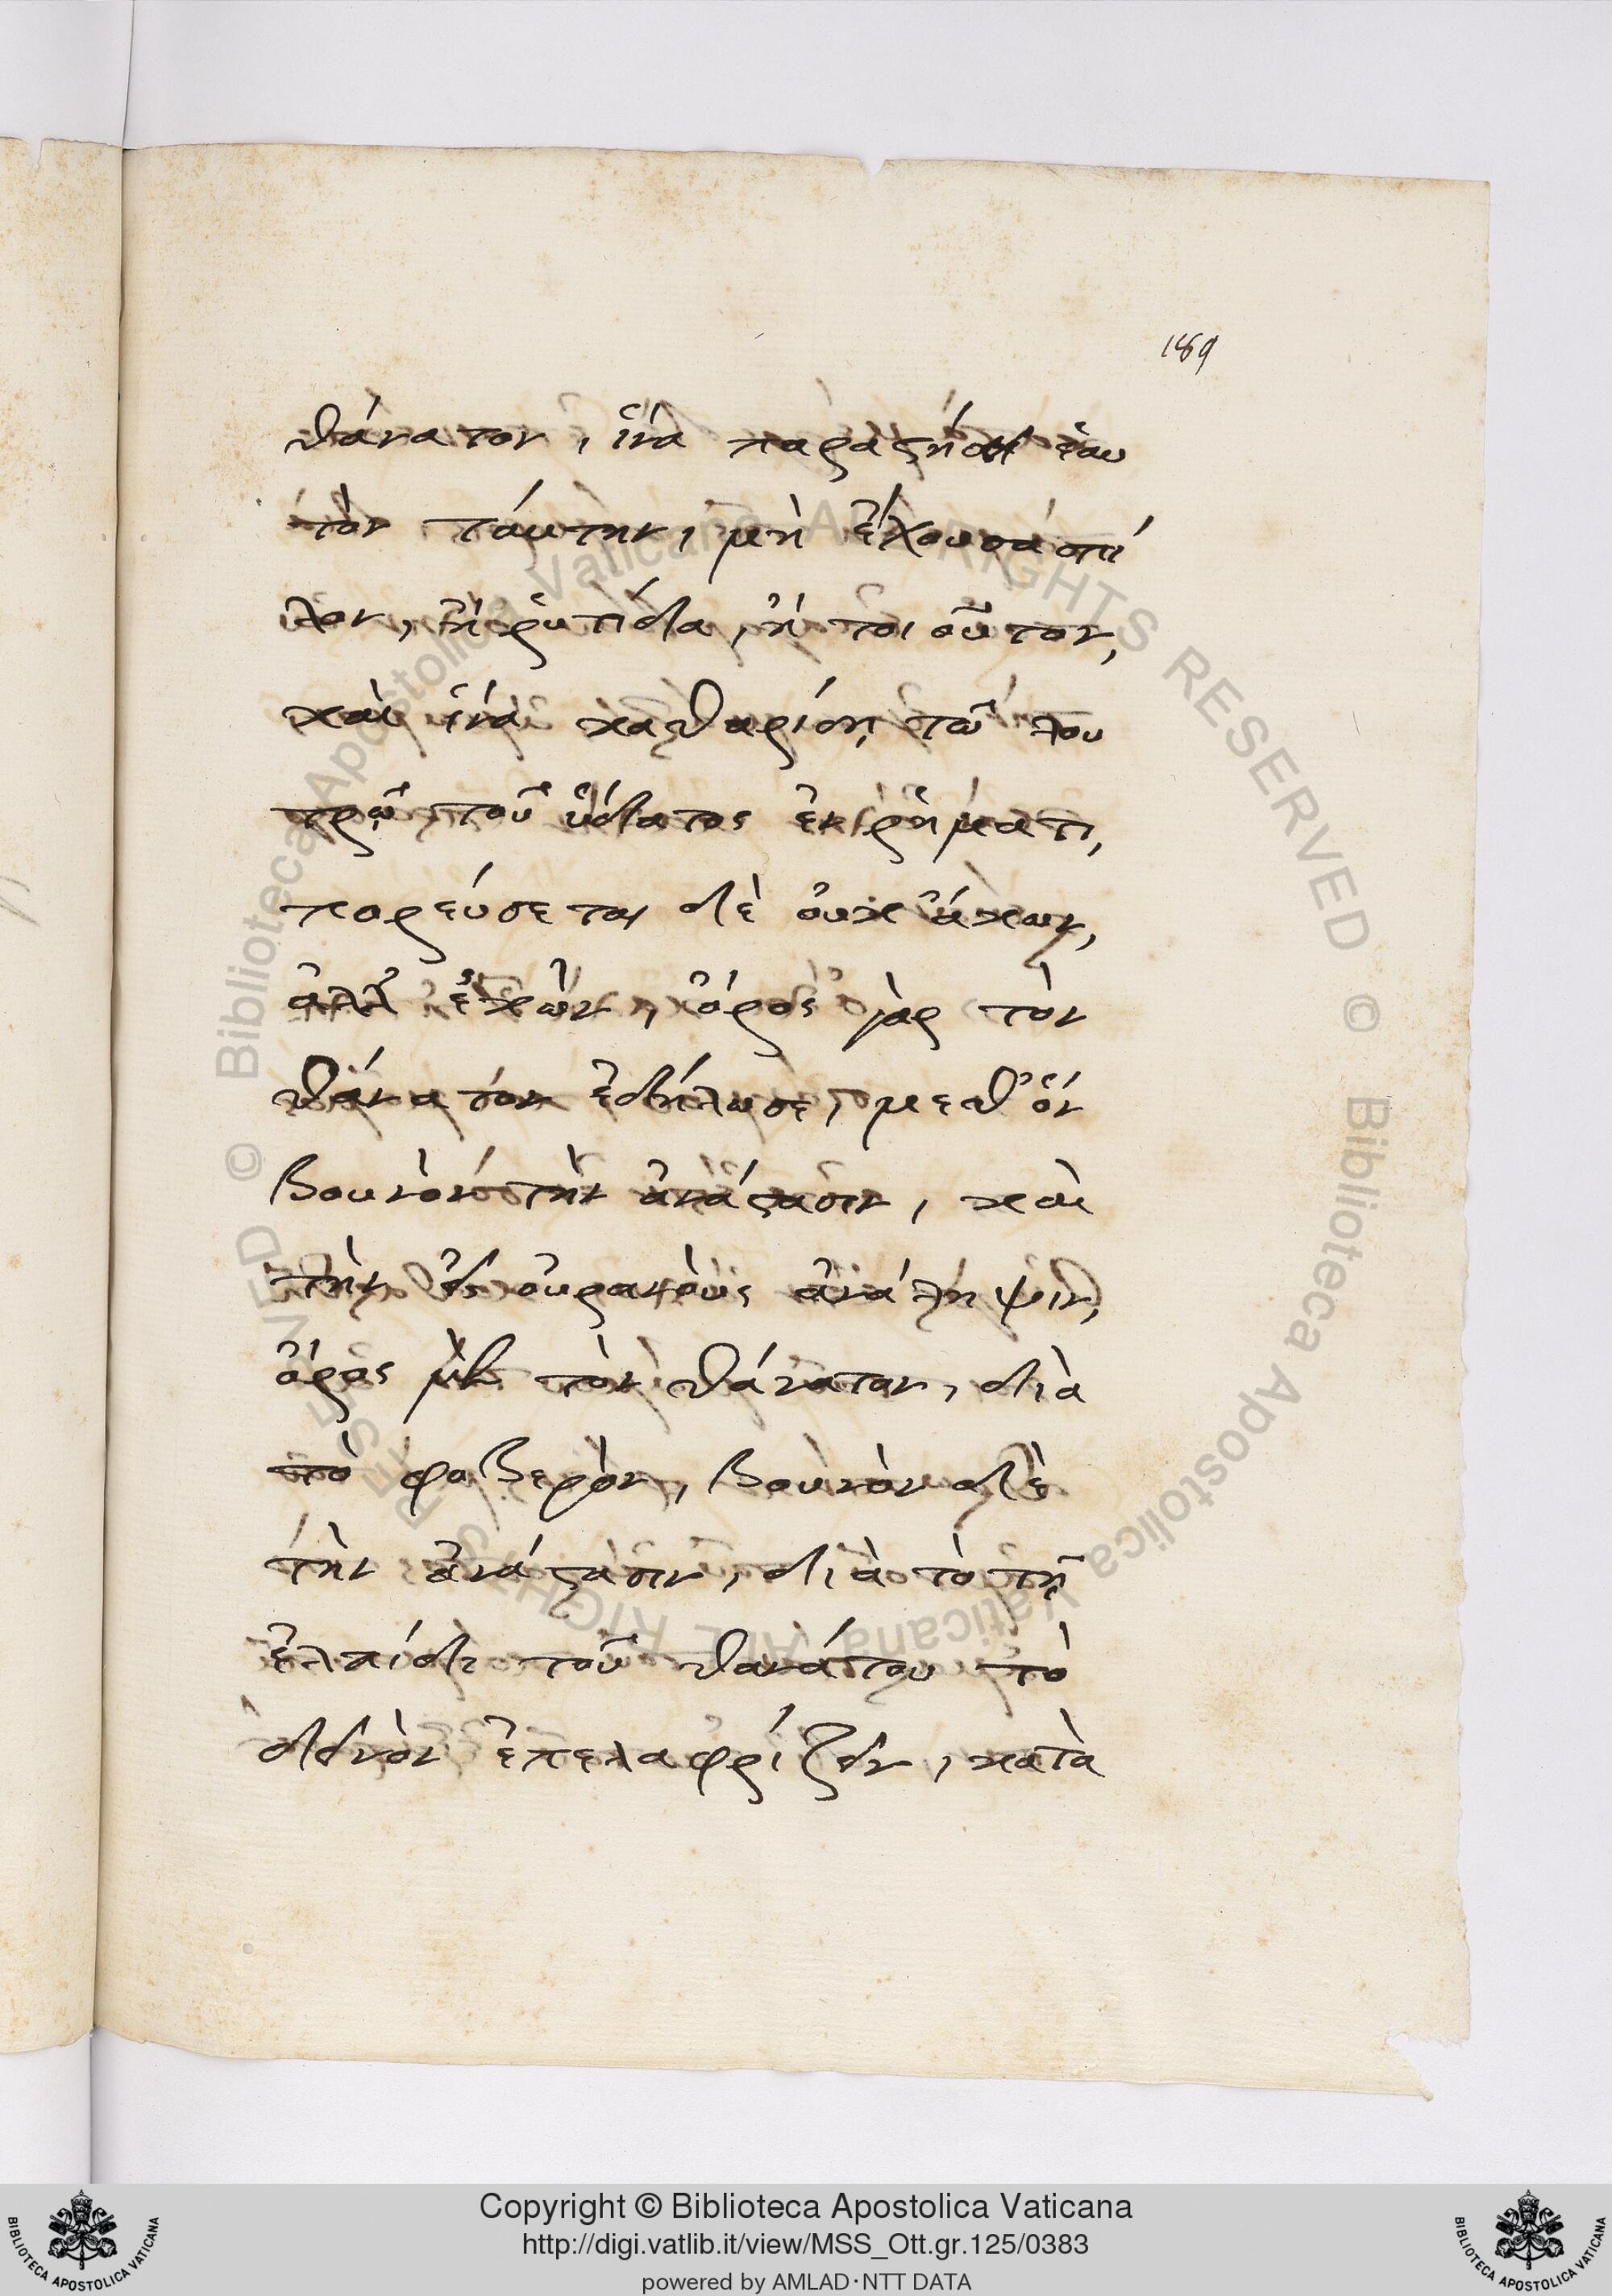 189
θάνατον, ἵνα παραστήσῃ ἑαυ
τὸν ταύτην, μὴ ἔχουσα σπί
λον, ἢ ῥυτίδα, ἤ τοι οὗτον,
καὶ ἵνα καθαρίσῃ τῷ λου
τρῷ τοῦ ὕδατος ἐν ῥήματι,
πορεύσεται δὲ οὐκ ἄκων,
ἀλλ' ἑκὼν, ὄρος γὰρ τὸν
θάνατον ἐδήλωσε, μεθ' ὃν
βουνὸν τὴν ἀνάστασιν, καὶ
τὴν εἰς οὐρανοὺς ἀνάληψιν,
ὄρος μὲν τὸν θάνατον, διὰ
τὸ φοβερὸν, βουνὸν δὲ
τὴν ἀνάστασιν, διὰ τὸ τῇ
ἐλπίδι τοῦ θανάτου τὸ
δεινὸν ἐπελαφρίζειν, κατὰ
Copyright © Biblioteca Apostolica Vaticana
http://digi.vatlib.it/view/MSS_Ott.gr.125/0383
powered by AMLAD·NTT DATA
BIBLIOTECA APOSTOLICA VATICANA
BIBLIOTECA APOSTOLICA VATICANA
© Biblioteca Apostolica Vaticana ALL RIGHTS RESERVED
© Biblioteca Apostolica Vaticana ALL RIGHTS RESERVED